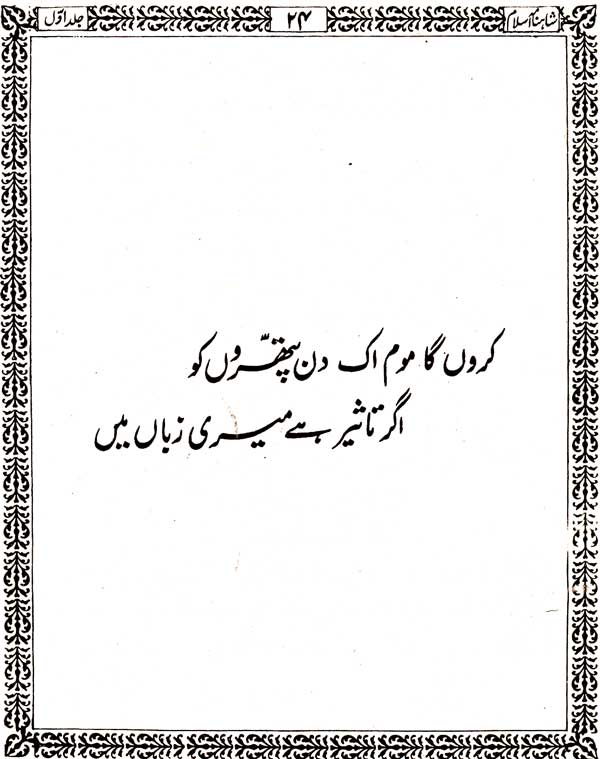 شاہنامۂ اسلام ۲۴ جلد اوّل
کروں گا موم اک دن پتھّروں کو
اگر تاثیر ہے میری زباں میں